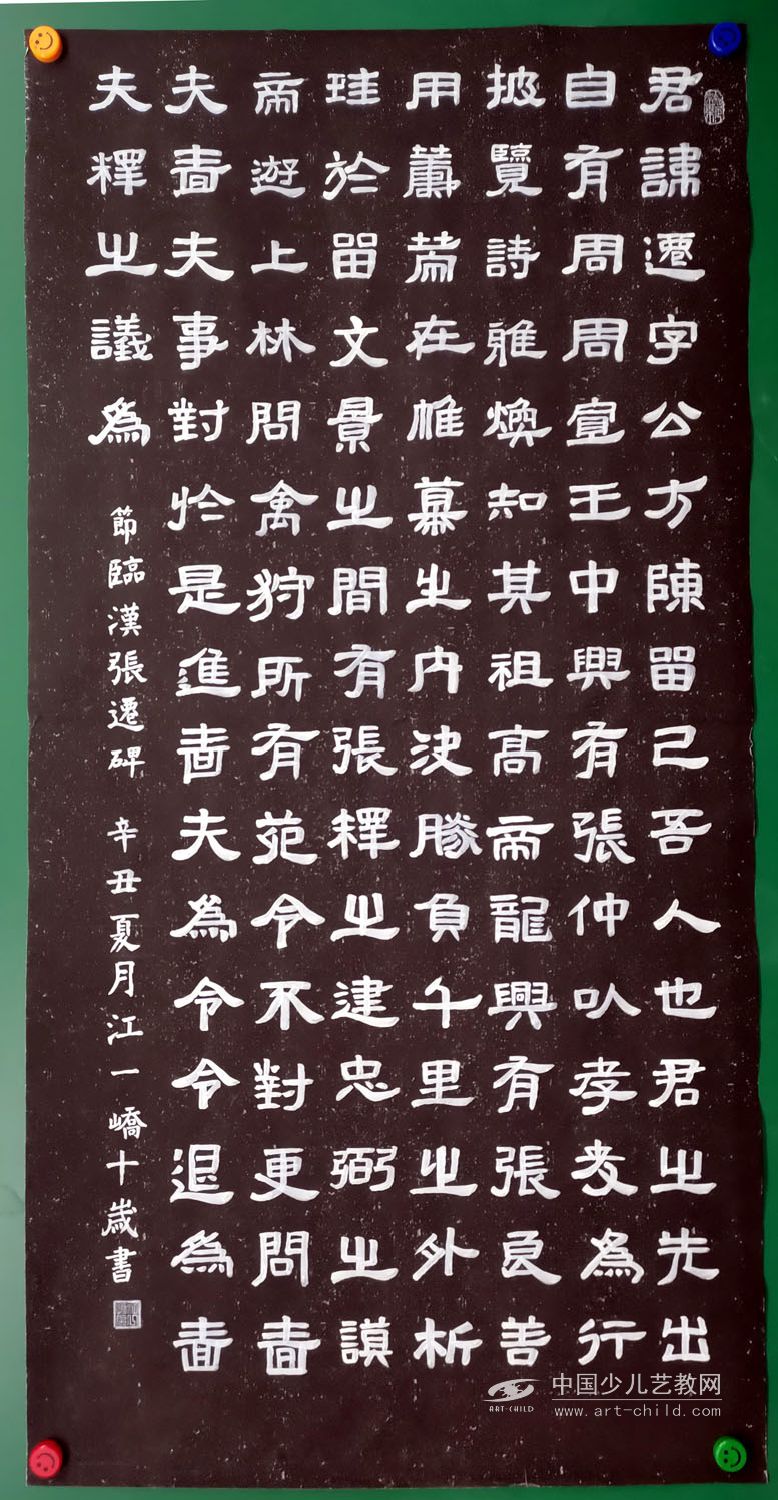 君諱遷字公方陳留己吾人也君之先出
自有周周宣王中興有張仲以孝友為行
披覽詩雅煥知其祖高帝龍興有張良善
用籌策在帷幕之内決勝負千里之外析
珪於留文景之間有張釋之建忠弼之謨
帝遊上林問禽狩所有苑令不對更問嗇
夫嗇夫事對於是進嗇夫為令令退為嗇
夫釋之議為
節臨漢張遷碑 辛丑夏月江一嶠十歲書
中国少儿艺教网
ART-CHILD
www.art-child.com